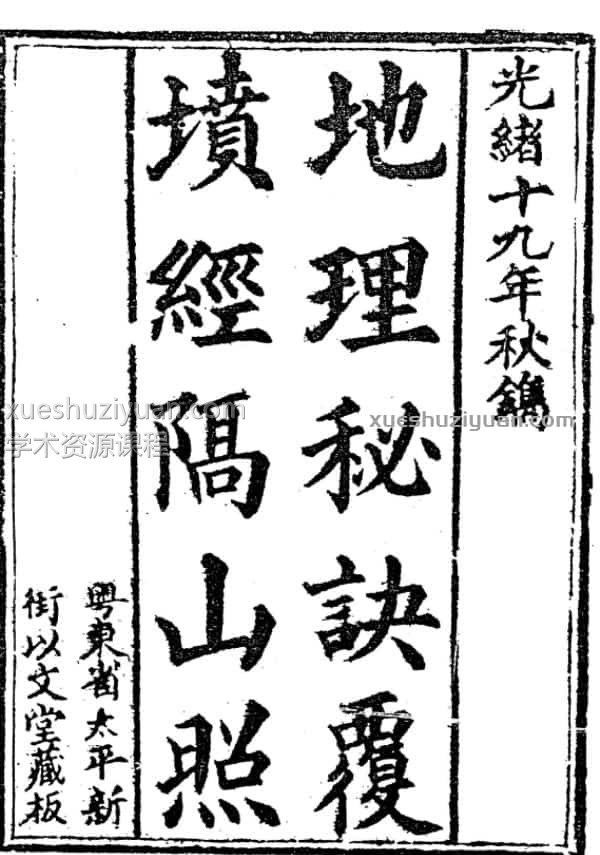 光緒十九年秋鐫
地理秘訣覆
墳經隔山照
粵東省太平新
街以文堂藏板
xueshuziyuan.com
学术资源课程
xueshuziyuan.com